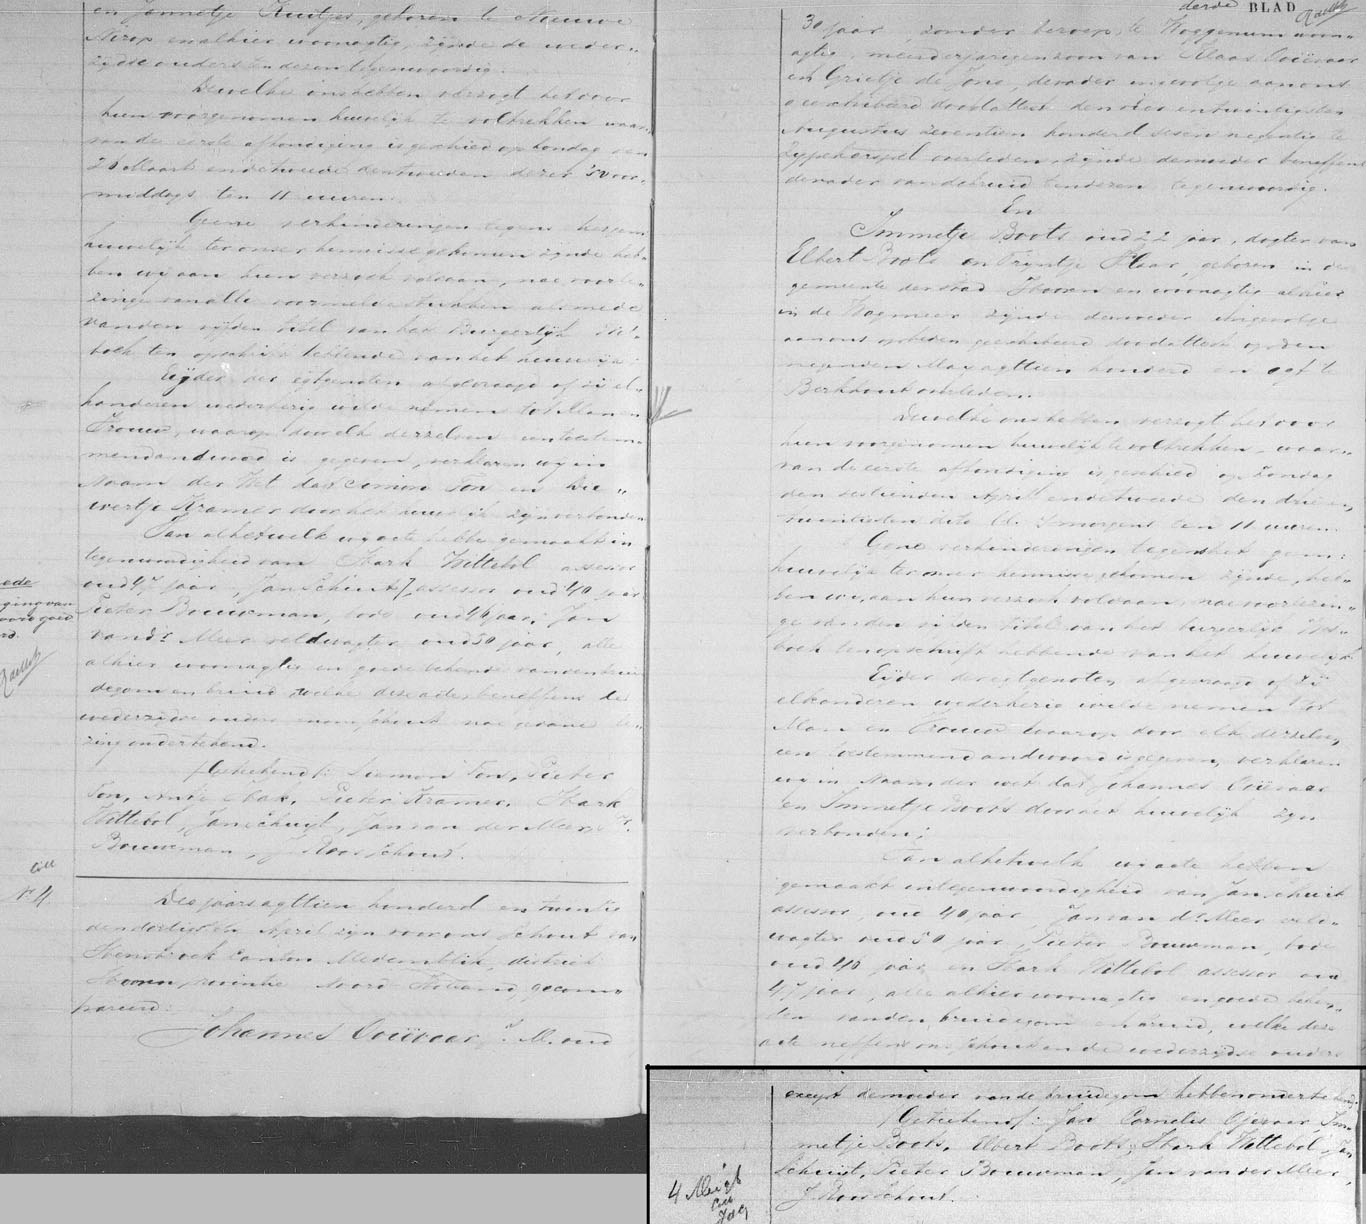 en Jannetje Kuitjes, geboren te Nieuwe
Nirop en alhier woonagtig, zijnde de weder-
zijdse ouders ten dezen tegenwoordig.
Dewelke ons hebben verzogt het door
hun voorgenomen huwelijk te voltrekken waar-
van de eerste afkondiging is geschied op Zondag den
26 Maart en de tweede den tweeden dezer 's voor-
middags ten 11 uuren.
Geene verhinderingen tegens het gem:
huwelijk ter onser kennisse gekomen zijnde heb-
ben wij aan hun verzoek voldaan, nae voorle-
zinge van alle voormelde stukken alsmede
van den vijfden titel van het Burgerlijk Wet-
boek ten opschrift hebbende van het huwelijk
Eijder der egtgenoten afgevraagd of zij el-
kanderen wederkerig wilde nemen tot Man en
Vrouw, waarop door elk derzelven een toestem-
mend andwoord is gegeven, verklaren wij in
Naam der Wet dat Simon Ton en Die-
wertje Kramer door het huwelijk zijn verbonden
Van al hetwelk wij acte hebben gemaakt in
tegenwoordigheid van Hark Wittebol assessor
oud 47 jaar, Jan Schuijt assessor oud 40 jaar
Pieter Bouwman, bode oud 46 jaar, Jan
van dr Meer veldwagter oud 50 jaar, alle
alhier woonagtig en goede bekende van den brui-
degom en bruid welke deze acte, beneffens de
wederzijdse ouders en ons schout nae gedane le-
zing ondertekend.
/Getekend/: Siemon Ton, Pieter
Ton, Antje Bak, Pieter Kramer, Hark
Wittebol, Jan Schuijt, Jan van der Meer, P.
Bouwman, J Roos Schout.
N 4.
Des jaars agttien honderd en twintig
den dertigsten April zijn voor ons Schout van
Hensbroek Canton Medemblik, district
Hoorn, provintie Noord Holland, gecom-
pareerd:
Johannes Ooievaar J. M. oud
derde BLAD
30 jaar, zonder beroep, te Hoggenum woon-
agtig, meerderjarigen zoon van Klaas Ooievaar
en Grietje de Jong, de vader ingevolge aan ons
geexhibeerd doodattest den
Augustus zeventien honderd sesen negentig te
Zijpekerspel overleden zijnde de moeder beneffens
de vader van de bruid ten dezen tegenwoordig.
En
Immetje Boots oud 22 jaar, dogter van
Elbert Boots en Trijntje Klaar, geboren in de
gemeente der stad Hoorn en woonagtig alhier
in de Wogmeer zijnde de moeder ingevolge
aan ons op heden geexhibeerd doodattest op den
negenden May agttien honderd en agt te
Berkhout overleden.
Dewelke ons hebben verzogt het door
hun voorgenomen huwelijk te voltrekken, waar-
van de eerste afkondiging is geschied op Zondag
den sestienden April en de tweede den drieen
twintigsten dito ll. 's morgens ten 11 uuren.
Gene verhinderingen tegens het gem:
huwelijk ter onser kennisse gekomen zijnde, heb-
ben wij aan hun verzoek voldaan, nae voorlezin-
ge van den vijfden titel van het burgerlijk Wet-
boek ten opschrift hebbende van het huwelijk
Eijder der egtgenoten afgevraagd of zij
elkanderen wederkerig wilde nemen tot
Man en Vrouw waarop door elk derzelven
een toestemmend andwoord is gegeven, verklaren
wij in Naam der wet dat Johannes Ooievaar
en Immetje Boots door het huwelijk zijn
verbonden;
Van al hetwelk wij acte hebben
gemaakt in tegenwoordigheid van Jan Schuit
assessor, oud 40 jaar, Jan van dr Meer veld-
wagter oud 50 jaar, Pieter Bouwman, bode
oud 40 jaar en Hark Wittebol assessor oud
47 jaar, alle alhier woonagtig en goede beken-
den van den bruidegom en bruid, welke deze
acte neffens ons Schout en de wederzijdse ouders
except de moeder van de bruidegom hebben ondertekend
/Getekend/: Jan Cornelis Ojevaar Im-
metje Boots, Elbert Boots, Hark Wittebol, Jan
Schuijt, Pieter Bouwman, Jan van der Meer,
J Roos Schout.